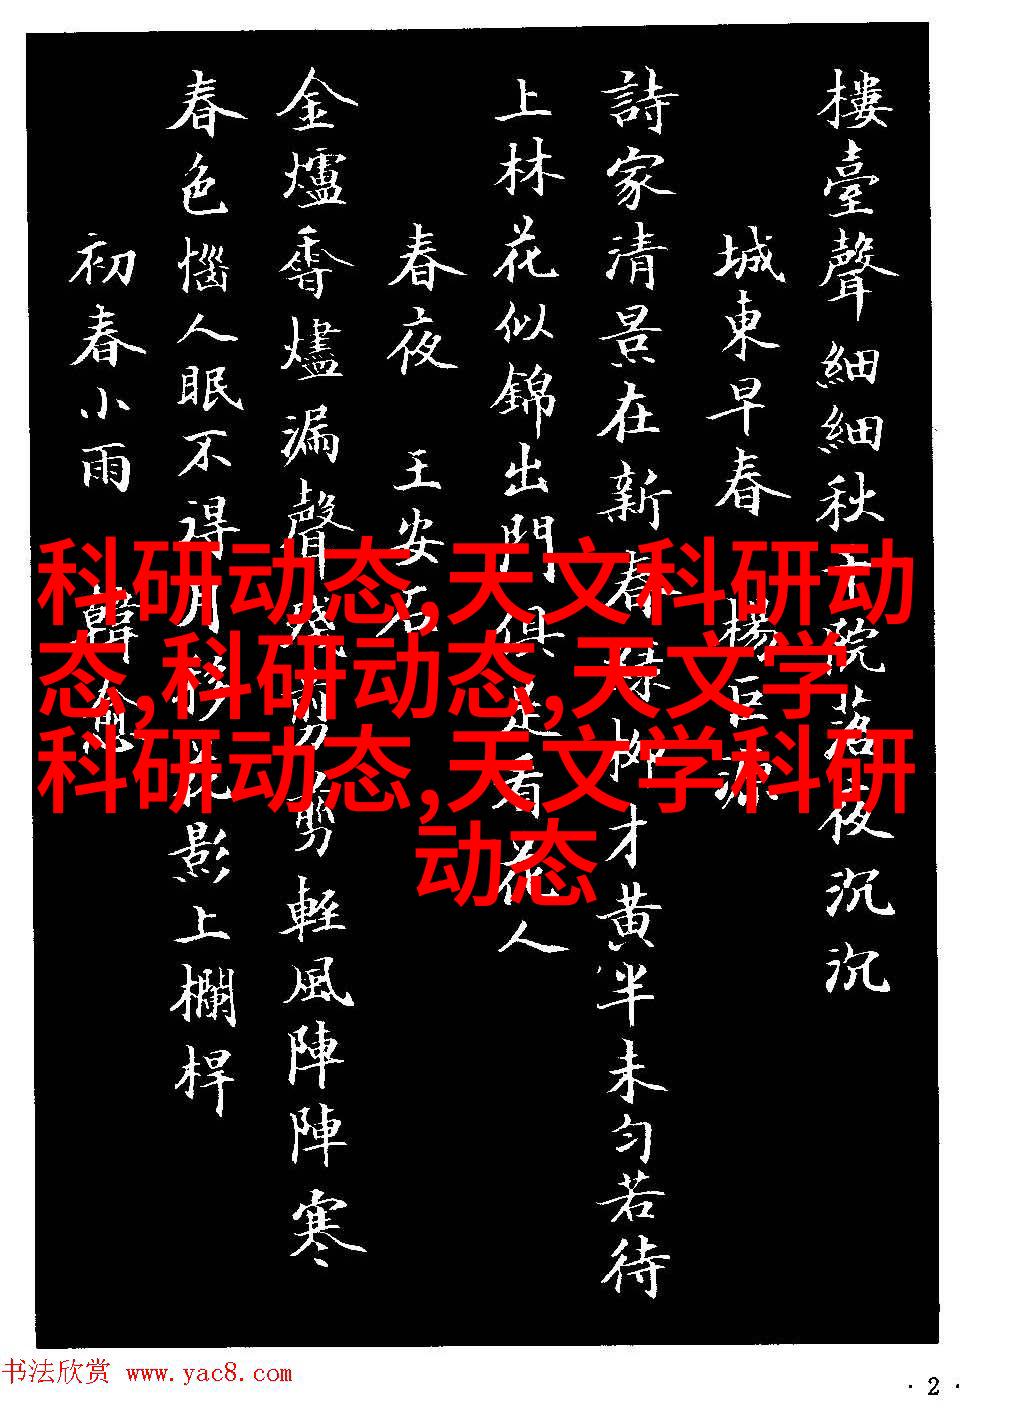 樓臺聲細細秋千院落夜沉沉
城東早春 楊巨源
詩家清景在新春綠柳才黃半未勻若待
上林花似錦出門俱是看花人
春夜 王安石
金爐香燼漏聲殘剪剪輕風陣陣寒
春色惱人眠不得月移花影上欄桿
初春小雨 韓愈
科研动态,天文科研动
态,科研动态,天文学
科研动态,天文学科研
动态
书法欣赏 www.yac8.com
· 2 ·